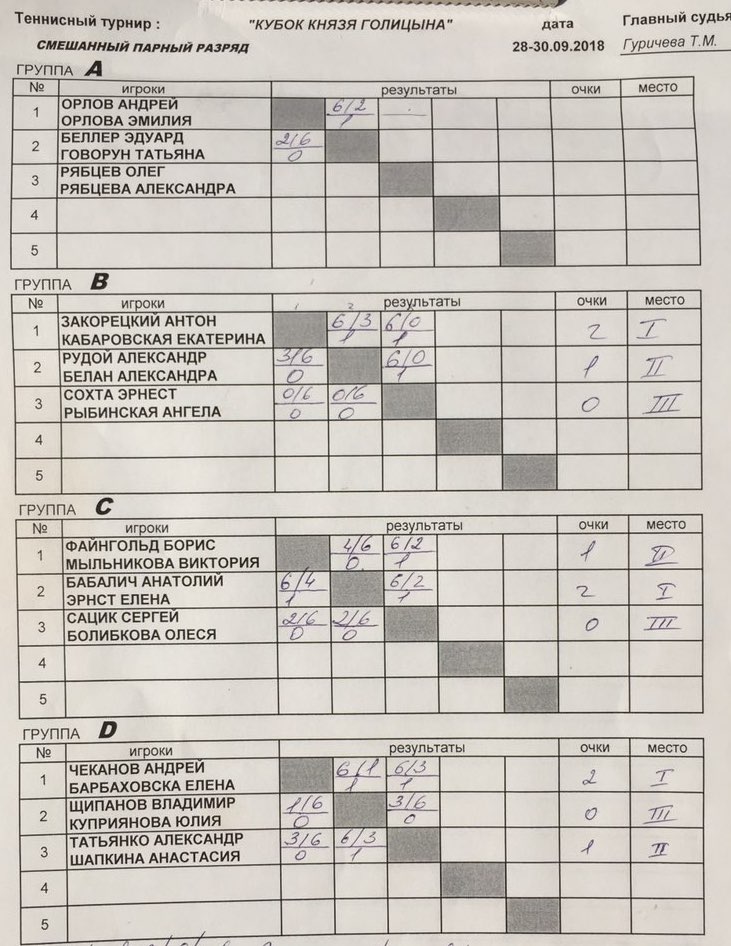 Теннисный турнир : "КУБОК КНЯЗЯ ГОЛИЦЫНА" дата Главный судья
СМЕШАННЫЙ ПАРНЫЙ РАЗРЯД 28-30.09.2018 Гуричева Т.М.
ГРУППА A
№ игроки результаты очки место
1 ОРЛОВ АНДРЕЙ 6/2
ОРЛОВА ЭМИЛИЯ 1
2 БЕЛЛЕР ЭДУАРД 2/6
ГОВОРУН ТАТЬЯНА 0
3 РЯБЦЕВ ОЛЕГ
РЯБЦЕВА АЛЕКСАНДРА
4
5
ГРУППА B
№ игроки результаты очки место
1 ЗАКОРЕЦКИЙ АНТОН 6/3 6/0 2 I
КАБАРОВСКАЯ ЕКАТЕРИНА 1 1
2 РУДОЙ АЛЕКСАНДР 3/6 6/0 1 II
БЕЛАН АЛЕКСАНДРА 0 1
3 СОХТА ЭРНЕСТ 0/6 0/6 0 III
РЫБИНСКАЯ АНГЕЛА 0 0
4
5
ГРУППА C
№ игроки результаты очки место
1 ФАЙНГОЛЬД БОРИС 4/6 6/2 1 II
МЫЛЬНИКОВА ВИКТОРИЯ 0 1
2 БАБАЛИЧ АНАТОЛИЙ 6/4 6/2 2 I
ЭРНСТ ЕЛЕНА 1 1
3 САЦИК СЕРГЕЙ 2/6 2/6 0 III
БОЛИБКОВА ОЛЕСЯ 0 0
4
5
ГРУППА D
№ игроки результаты очки место
1 ЧЕКАНОВ АНДРЕЙ 6/1 6/3 2 I
БАРБАХОВСКА ЕЛЕНА 1 1
2 ЩИПАНОВ ВЛАДИМИР 1/6 3/6 0 III
КУПРИЯНОВА ЮЛИЯ 0 0
3 ТАТЬЯНКО АЛЕКСАНДР 3/6 6/3 1 II
ШАПКИНА АНАСТАСИЯ 0 1
4
5